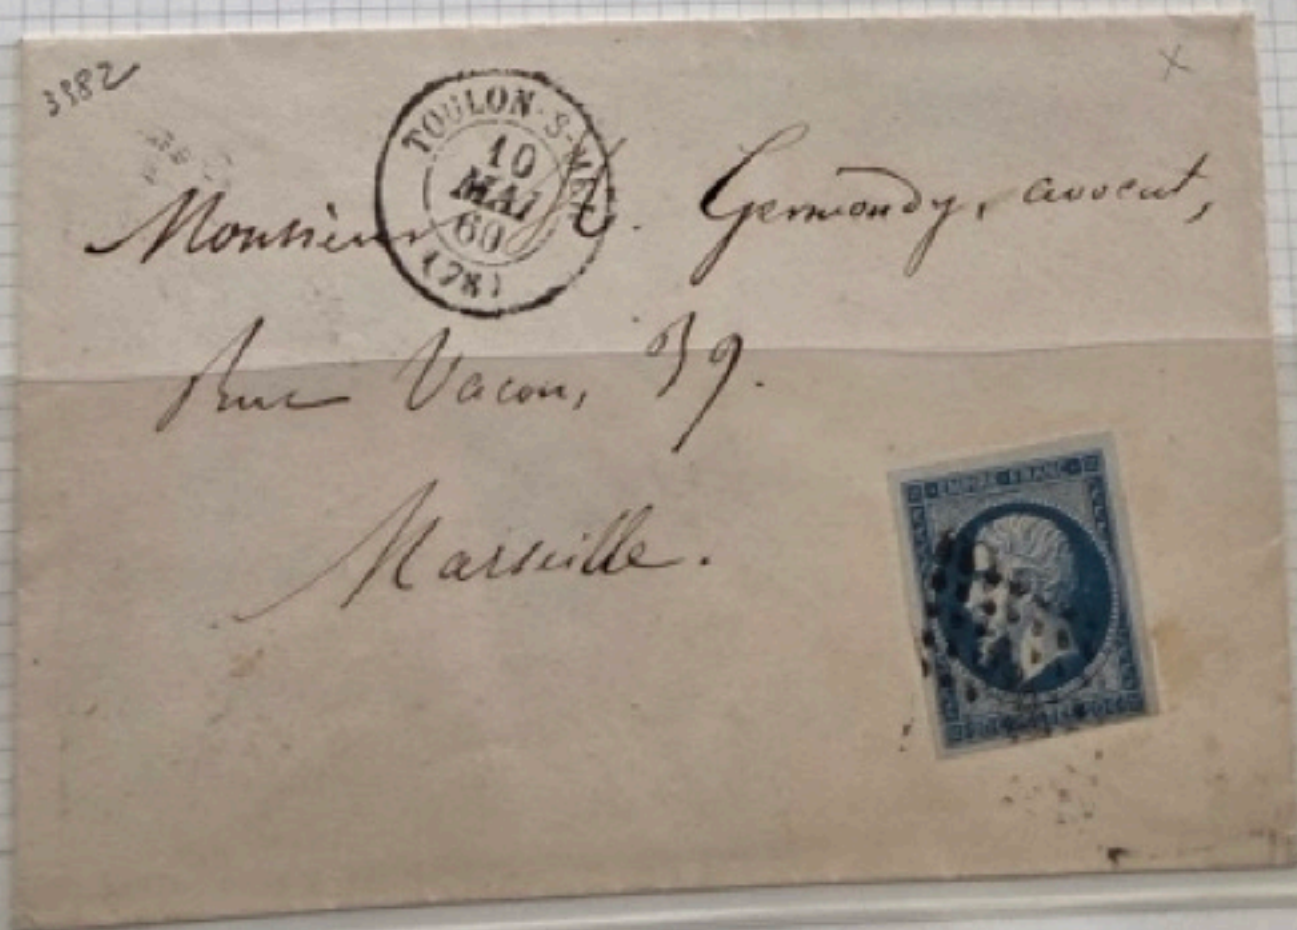 3382
TOULON-S-MER
10
MAI
60
(78)
Monsieur Germondy, avocat,
Rue Vacon, 39.
Marseille.
EMPIRE FRANC